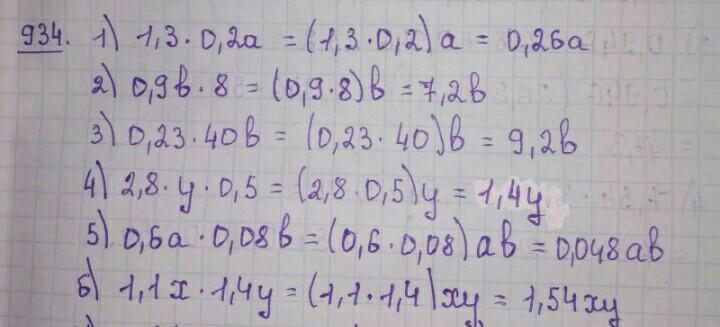 934. 1) 1,3 · 0,2a = (1,3 · 0,2) a = 0,26a
2) 0,9b · 8 = (0,9 · 8)b = 7,2b
3) 0,23 · 40b = (0,23 · 40)b = 9,2b
4) 2,8 · y · 0,5 = (2,8 · 0,5)y = 1,4y
5) 0,6a · 0,08b = (0,6 · 0,08) ab = 0,048ab
6) 1,1x · 1,4y = (1,1 · 1,4)xy = 1,54xy